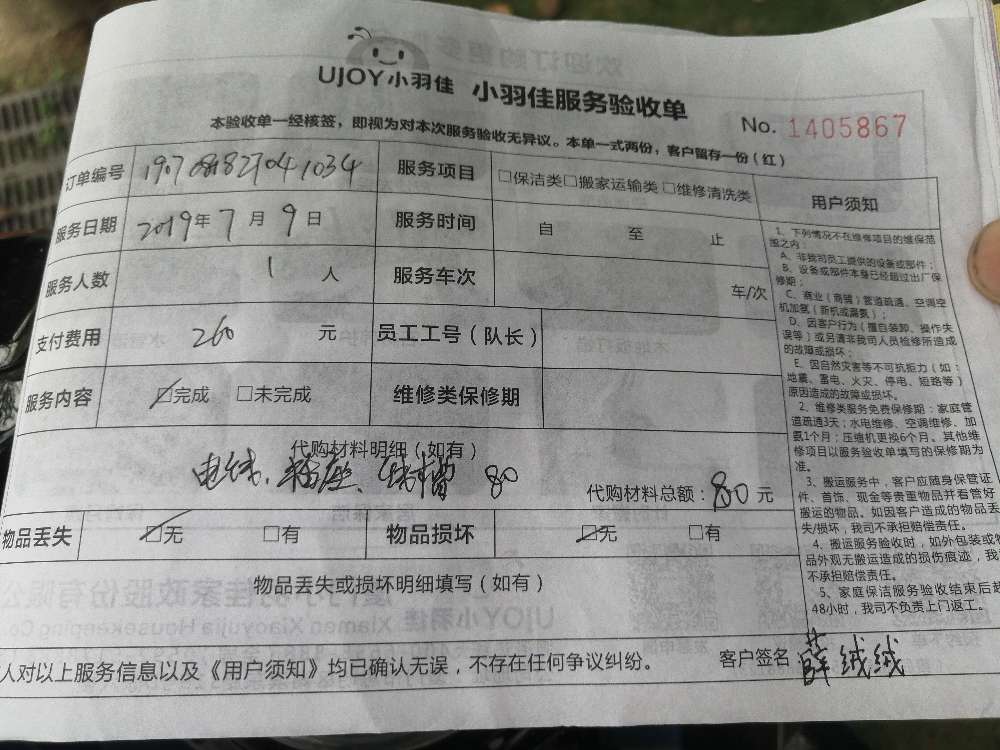 UJOY小羽佳 小羽佳服务验收单
No. 1405867
本验收单一经核签，即视为对本次服务验收无异议。本单一式两份，客户留存一份（红）
订单编号
服务项目 □保洁类□搬家运输类□维修清洗类
服务日期 2019年7月9日 服务时间 自 至 止
服务人数 1 人 服务车次 车/次
支付费用 260 元 员工工号（队长）
服务内容 □完成 □未完成 维修类保修期
代购材料明细（如有）
电线、插座、线槽 80 代购材料总额：80元
物品丢失 □无 □有 物品损坏 □无 □有
物品丢失或损坏明细填写（如有）
人对以上服务信息以及《用户须知》均已确认无误，不存在任何争议纠纷。 客户签名 薛绒绒
用户须知
1、下列情况不在维修项目的维保范
围之内：
A、非我司员工提供的设备或部件；
B、设备或部件本身已经超过出厂保
修期；
C、商业（商铺）管道疏通、空调空
机加氨（新机或漏氨）；
D、因客户行为（擅自装卸、操作失
误等）或另请非我司人员检修所造成
的故障或损坏；
E、因自然灾害等不可抗拒力（如：
地震、雷电、火灾、停电、短路等）
原因造成的故障或损坏。
2、维修类服务免费保修期：家庭管
道疏通3天；水电维修、空调维修、加
氨1个月；压缩机更换6个月。其他维
修项目以服务验收单填写的保修期为
准。
3、搬运服务中，客户应随身保管证
件、首饰、现金等贵重物品并看管好
搬运的物品。如因客户造成的物品丢
失/损坏，我司不承担赔偿责任。
4、搬运服务验收时，如外包装或物
品外观无搬运造成的损伤痕迹，我
不承担赔偿责任。
5、家庭保洁服务验收结束后超
48小时，我司不负责上门返工。